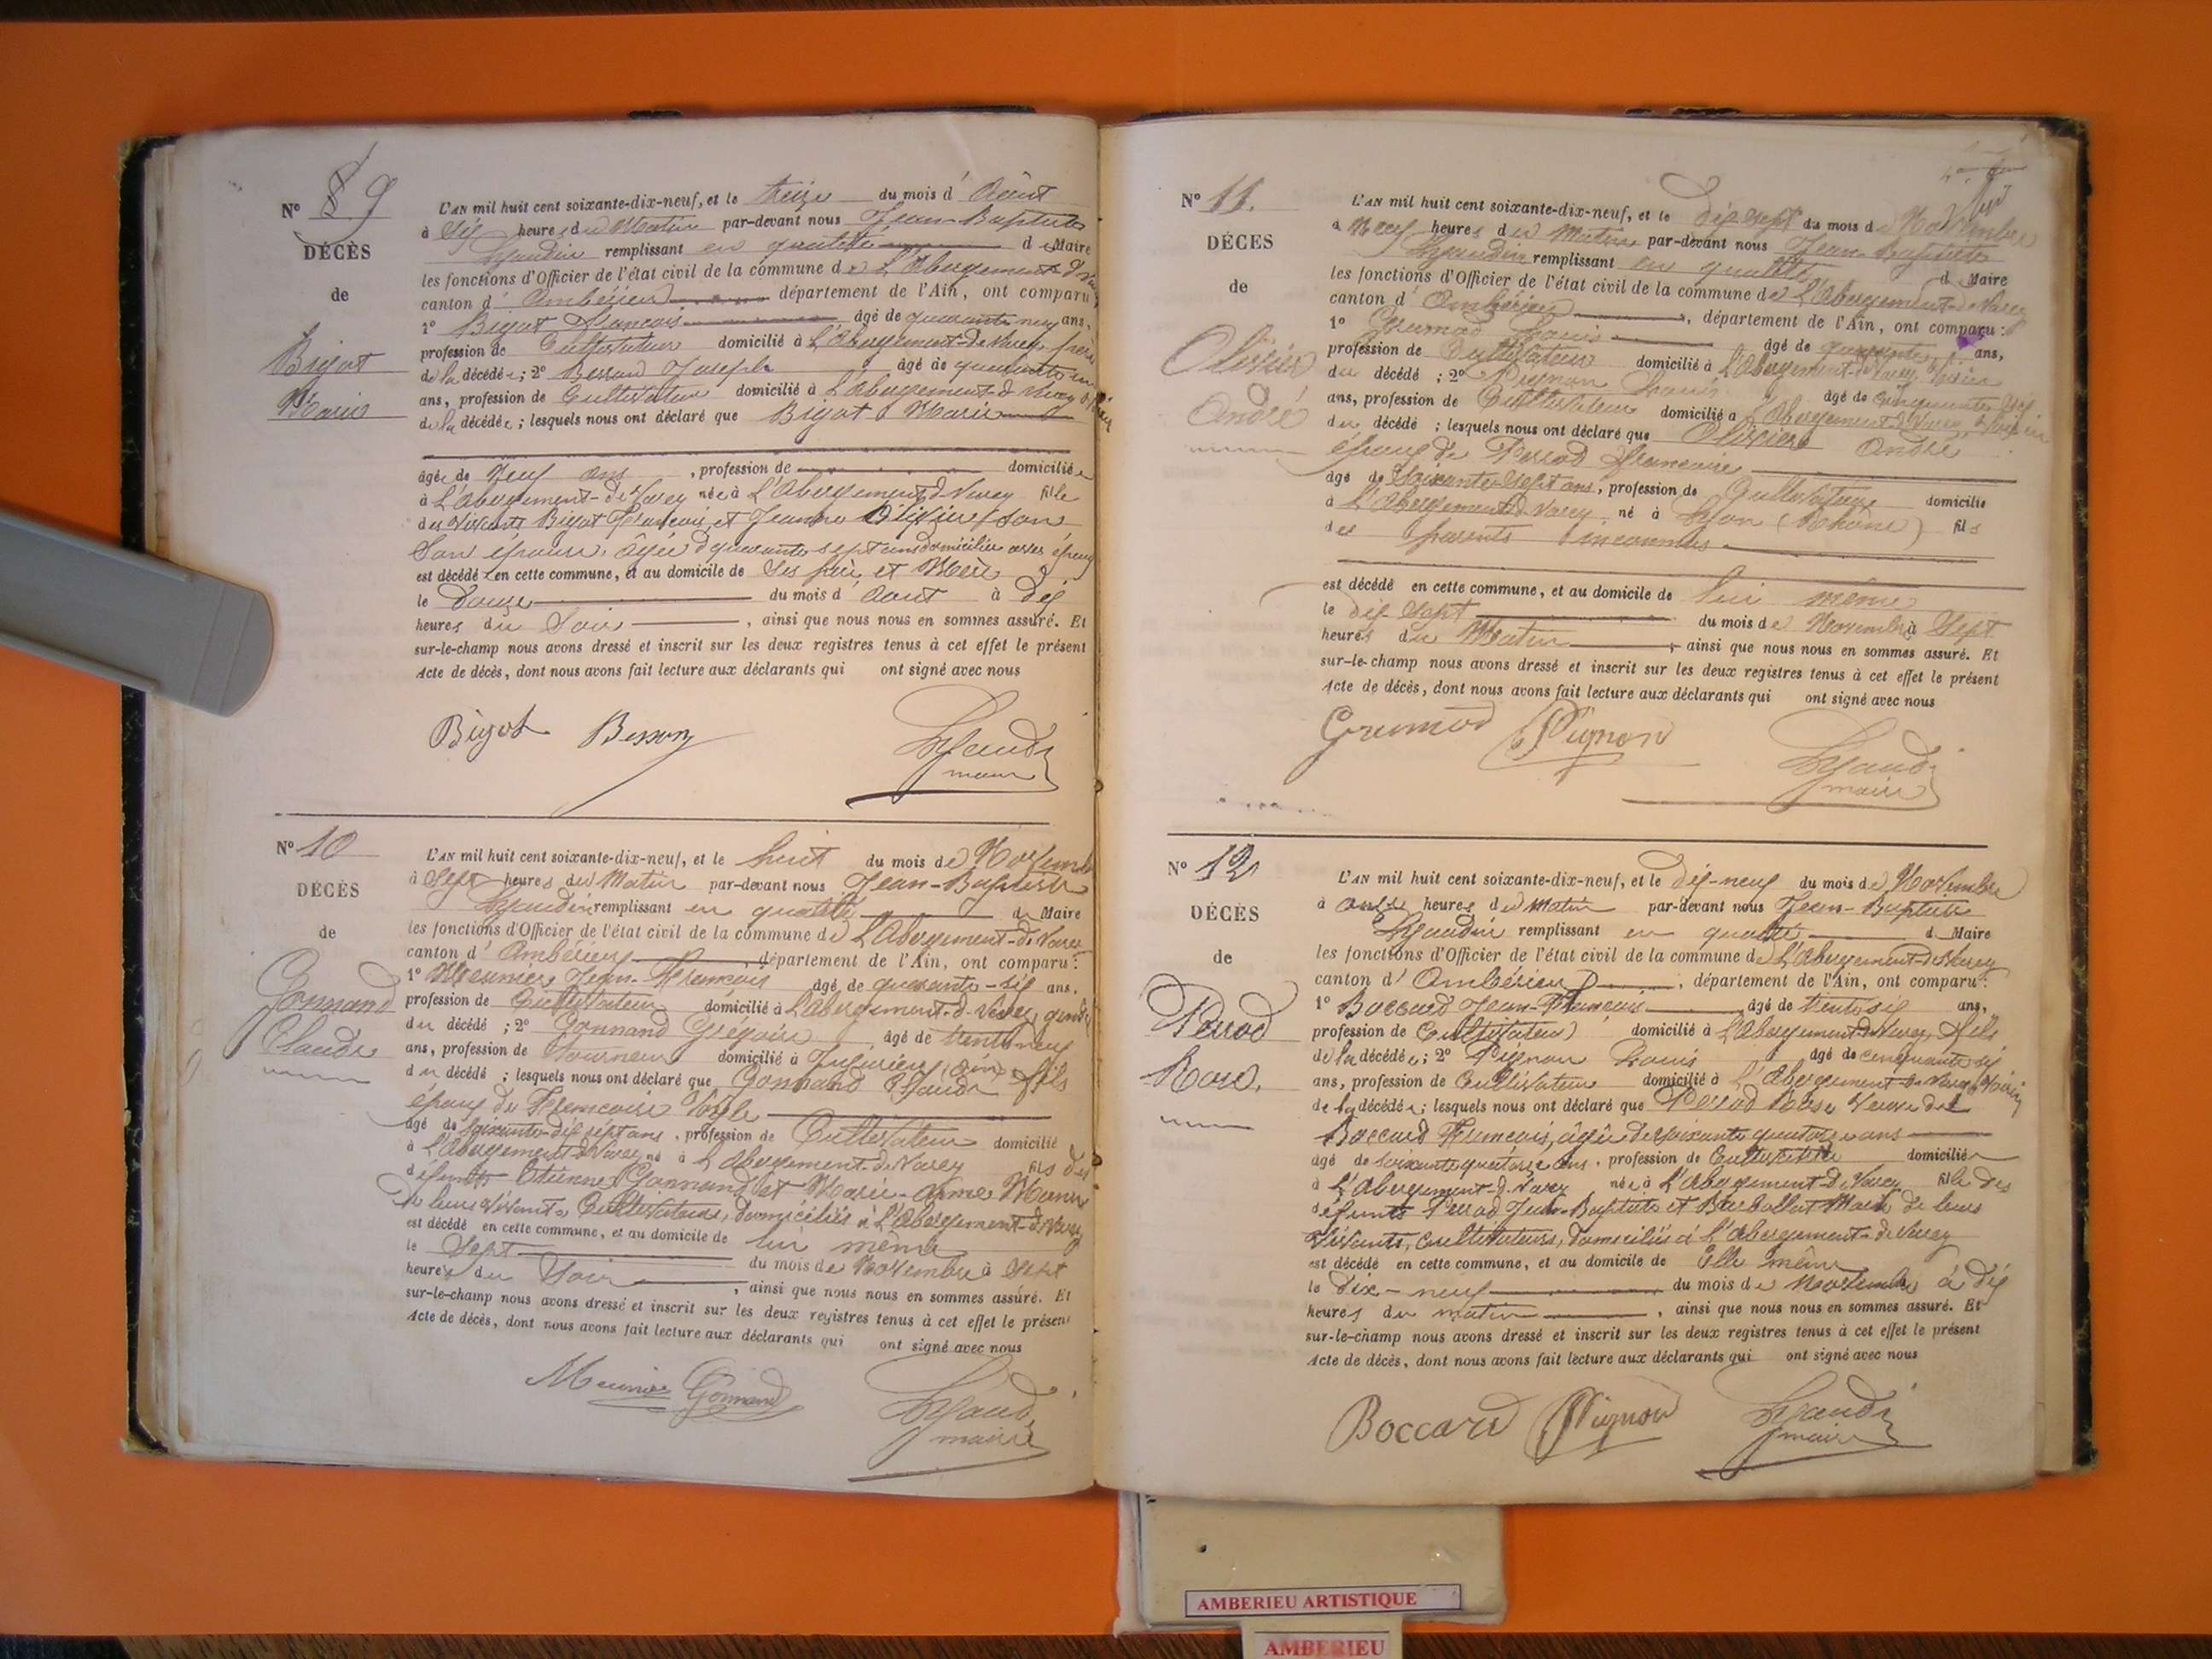 Nº 8 9
DÉCÈS
de
Bigot
Marie
L'AN mil huit cent soixante-dix-neuf, et le treize du mois d' Août
à Six heures du Matin par-devant nous Jean-Baptiste
remplissant en qualité de Maire
les fonctions d'Officier de l'état civil de la commune de L'Abergement-d
canton d' Ambérieu département de l'Ain, ont comparu
1º Bigot François âgé de quarante neuf ans,
profession de Cultivateur domicilié à L'Abergement-de-Varey,
de la décédée; 2º Besson Joseph âgé de quarante
ans, profession de Cultivateur domicilié à L'Abergement-d Varey
de la décédée; lesquels nous ont déclaré que Bigot Marie
âgée de Neuf ans, profession de domiciliée
à L'Abergement-de Varey née à L'Abergement-d Varey fille
des vivants Bigot François et Jeanne Olivier
Son épouse, âgée de quarante sept ans domiciliée
est décédée en cette commune, et au domicile de Ses père et Mère
le Douze du mois d' Août à dix
heures du Soir, ainsi que nous nous en sommes assuré. Et
sur-le-champ nous avons dressé et inscrit sur les deux registres tenus à cet effet le présent
Acte de décès, dont nous avons fait lecture aux déclarants qui ont signé avec nous
Bigot Besson
maire
Nº 10
DÉCÈS
de
Gonnand
Claude
L'AN mil huit cent soixante-dix-neuf, et le huit du mois de Novembre
à Sept heures du Matin par-devant nous Jean-Baptiste
remplissant en qualité de Maire
les fonctions d'Officier de l'état civil de la commune de L'Abergement-de Varey
canton d' Ambérieu, département de l'Ain, ont comparu:
1º Meunier Jean-François âgé de quarante-six ans,
profession de Cultivateur domicilié à L'abergement-d-Varey gendre
du décédé; 2º Gonnand Grégoire, âgé de trente neuf
ans, profession de Tourneur domicilié à Jujurieux, ain fils
du décédé; lesquels nous ont déclaré que Gonnand Claude
époux de Françoise
âgé de soixante-dix sept ans, profession de Cultivateur domicilié
à L'Abergement de Varey né à L'Abergement-de Varey fils des
défunts Etienne Gonnand et Marie-Anne
de leurs vivants Cultivateurs, domiciliés à L'Abergement-de Varey
est décédé en cette commune, et au domicile de lui même
le Sept du mois de Novembre à Sept
heures du Soir, ainsi que nous nous en sommes assuré. Et
sur-le-champ nous avons dressé et inscrit sur les deux registres tenus à cet effet le présent
Acte de décès, dont nous avons fait lecture aux déclarants qui ont signé avec nous
Meunier Gonnand
maire
Nº 11.
DÉCÈS
de
Olivier
André
L'AN mil huit cent soixante-dix-neuf, et le dix sept du mois de Novembre
à Neuf heures du Matin par-devant nous Jean Baptiste
remplissant en qualité de Maire
les fonctions d'Officier de l'état civil de la commune de L'Abergement-de Varey
canton d' Ambérieu, département de l'Ain, ont comparu:
1º Grumod Louis âgé de quarante ans,
profession de Cultivateur domicilié à L'Abergement-de Varey, Voisin
du décédé; 2º Pignon Louis âgé de cinquante six
ans, profession de Cultivateur domicilié à L'Abergement-d Varey, Voisin
du décédé; lesquels nous ont déclaré que Olivier André
époux de Perrod Françoise
âgé de Soixante-Sept ans, profession de Cultivateur domicilié
à L'Abergement-d Varey né à Lyon (Rhône) fils
de parents inconnus
est décédé en cette commune, et au domicile de lui même
le dix-Sept du mois de Novembre à Sept
heures du Matin, ainsi que nous nous en sommes assuré. Et
sur-le-champ nous avons dressé et inscrit sur les deux registres tenus à cet effet le présent
Acte de décès, dont nous avons fait lecture aux déclarants qui ont signé avec nous
Grumod Pignon
maire
Nº 12
DÉCÈS
de
Perrod
Rose,
L'AN mil huit cent soixante-dix-neuf, et le dix-neuf du mois de Novembre
à onze heures du Matin par-devant nous Jean-Baptiste
remplissant en qualité de Maire
les fonctions d'Officier de l'état civil de la commune de L'Abergement-de Varey
canton d' Ambérieu, département de l'Ain, ont comparu:
1º Boccard Jean-François âgé de trente six ans,
profession de Cultivateur domicilié à L'Abergement-de Varey, fils
de la décédée; 2º Pignon Louis âgé de cinquante six
ans, profession de Cultivateur domicilié à L'Abergement-de Varey, Voisin
de la décédée; lesquels nous ont déclaré que Perrod Rose Veuve de
Boccard François, âgée de soixante quatorze ans
âgé de soixante quatorze ans, profession de Cultivatrice domiciliée
à L'Abergement-d Varey née à L'Abergement-de Varey fille des
défunts Perrod Jean-Baptiste et de leurs
vivants, cultivateurs, domiciliés à L'Abergement-de Varey
est décédé en cette commune, et au domicile de Elle même
le dix-neuf du mois de Novembre à dix
heures du matin, ainsi que nous nous en sommes assuré. Et
sur-le-champ nous avons dressé et inscrit sur les deux registres tenus à cet effet le présent
Acte de décès, dont nous avons fait lecture aux déclarants qui ont signé avec nous
Boccard Pignon
maire
AMBERIEU ARTISTIQUE
AMBERIEU